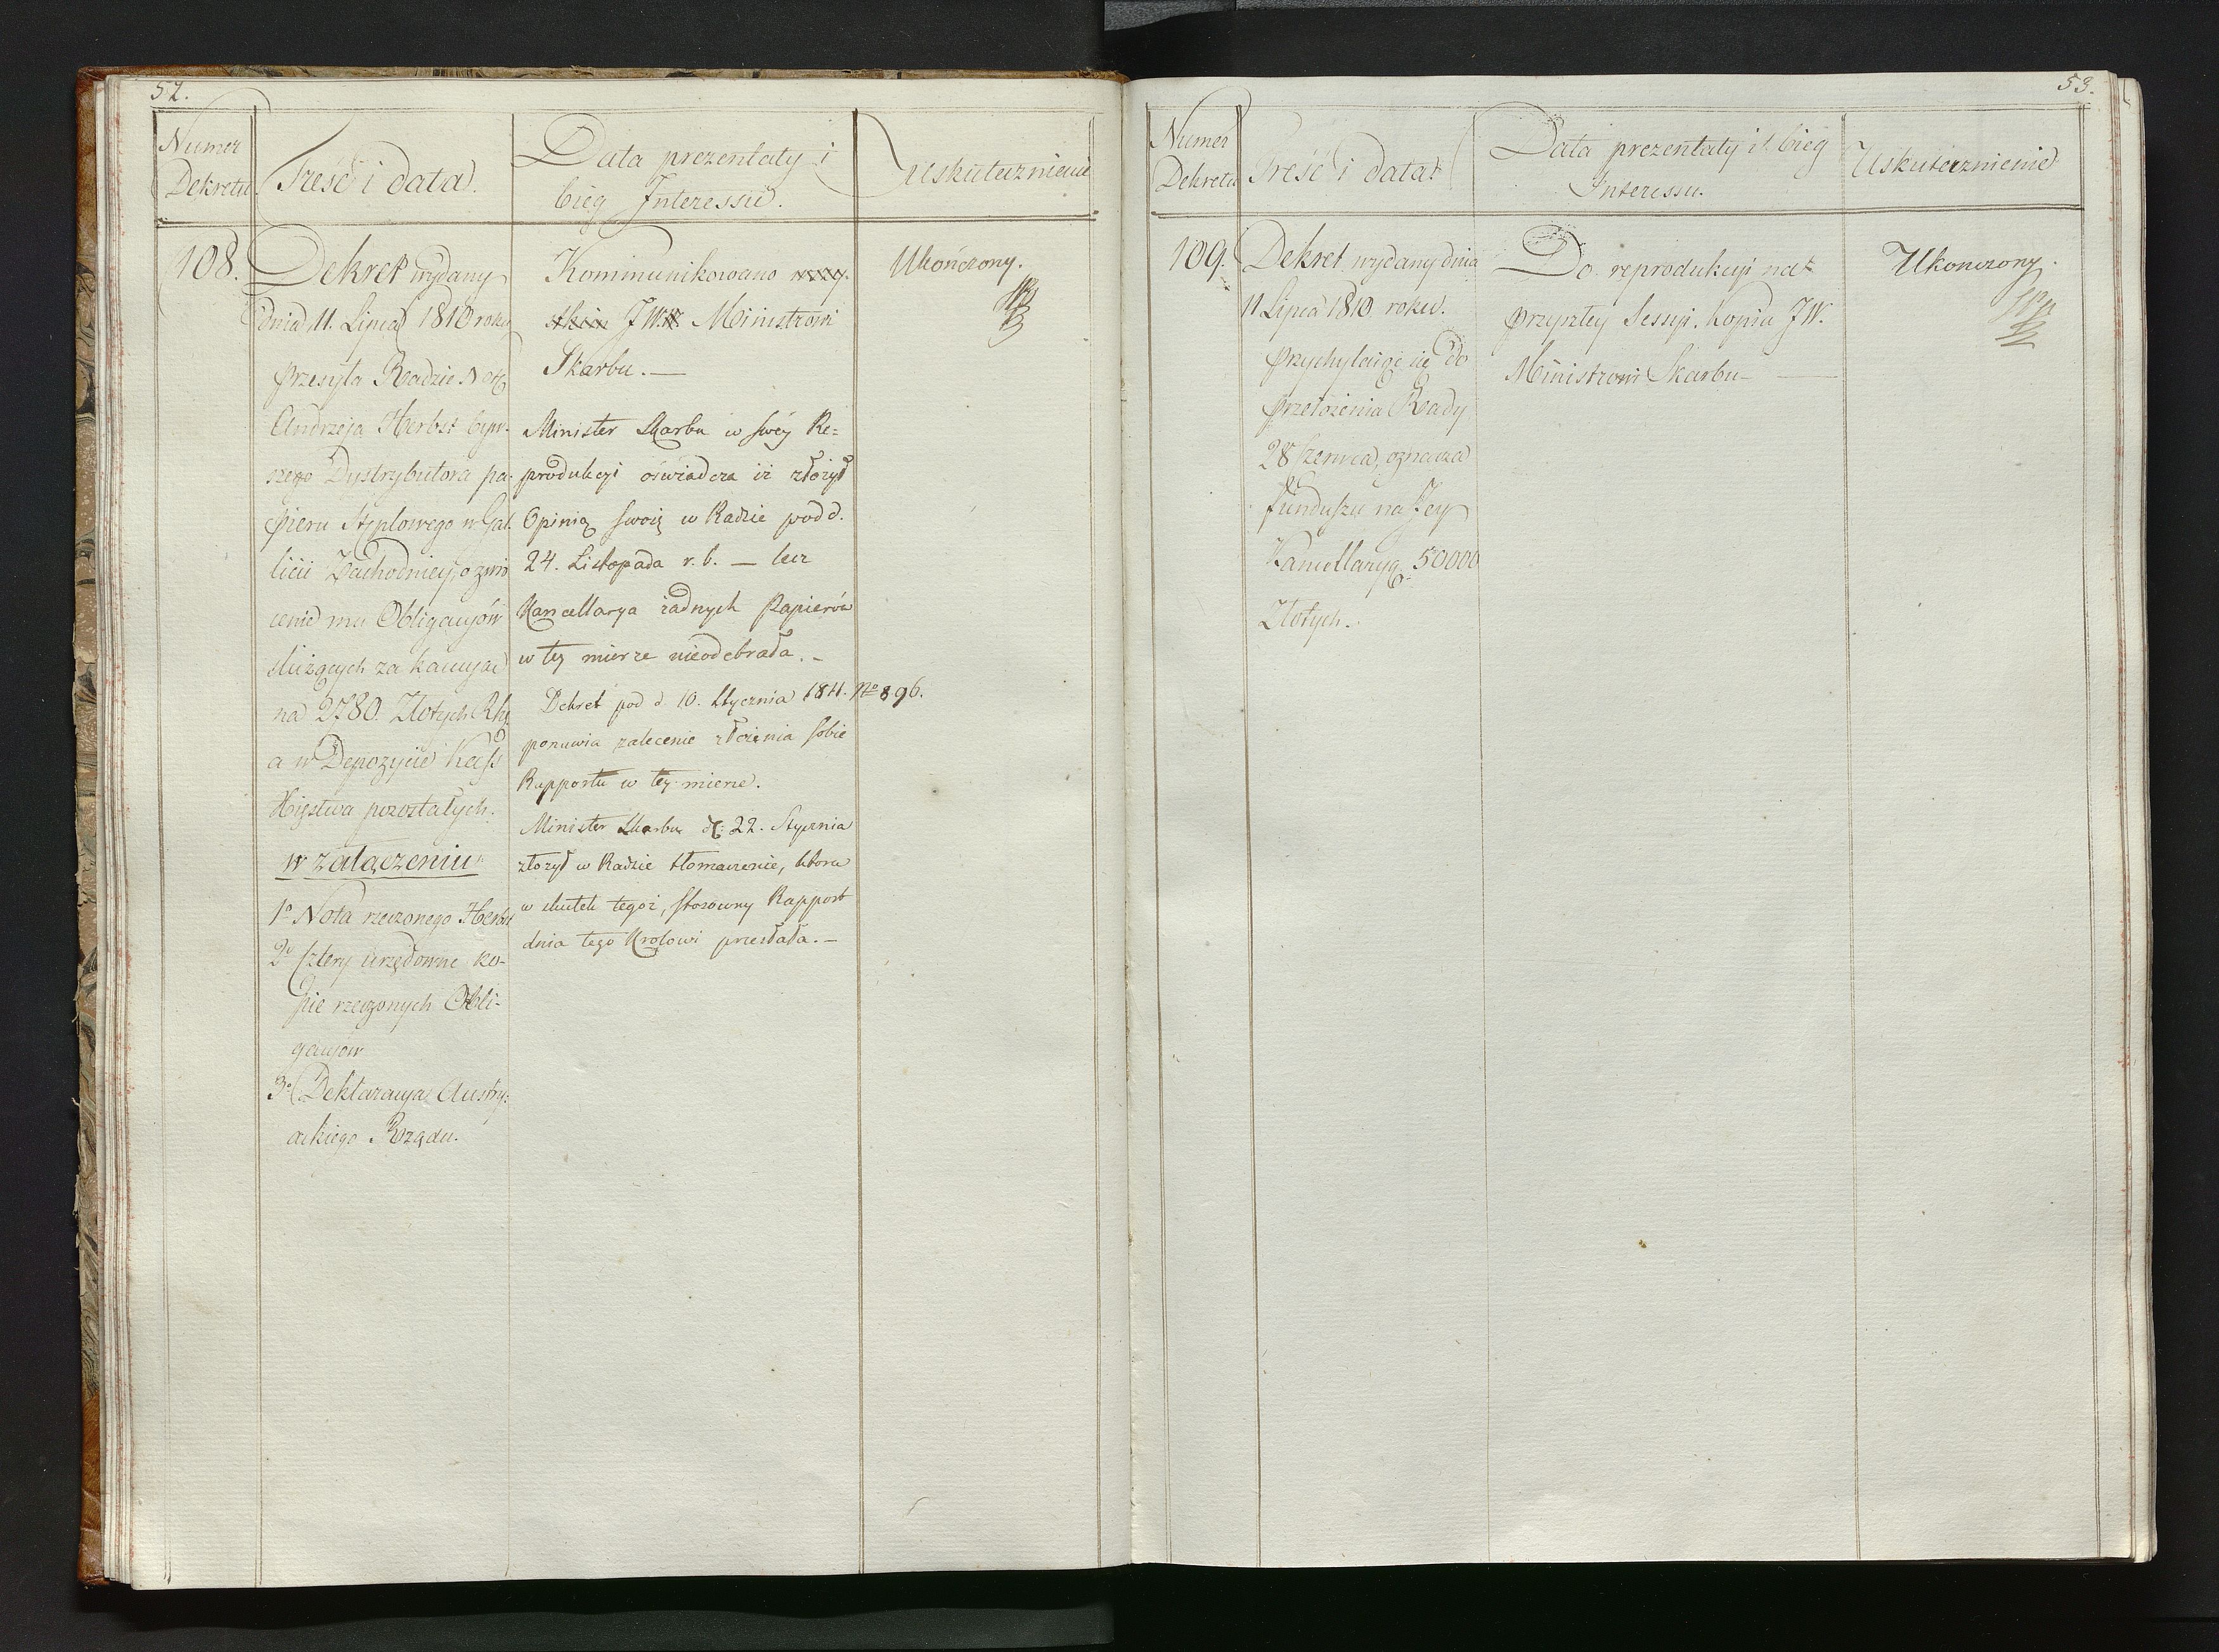 52.
Numer
Dekretu
Treść i data.
Data prezentaty i
bieg Interessu.
Uskutecznienie
108.
Dekret wydany
dnia 11. Lipca 1810 roku
przesyła Radzie Notę
Andrzeja Herbst byw-
szego Dystrybutora pa-
pieru Stęplowego w Gal-
licii Zachodniey, o zwró
cenie mu Obligacyów
służących za kaucyą
na 2780. Złotych Rh.
a w Depozycie Kass
Xięstwa pozostałych.
w załączeniu
1o Nota rzeczonego Herbst
2o Cztery urzędowne ko-
pie rzeczonych Obli-
gacyow
3o Deklaracya Austry-
ackiego Rządu.
Kommunikowano wszy-
stkim JWW Ministrowi
Skarbu. —
Minister Skarbu w swéy Re=
produkcyi oświadcza iż złożył
Opinią swoię w Radzie pod d.
24. Listopada r. b. — lecz
Kancellarya żadnych Papierów
w tey mierze nieodebrała. –
Dekret pod d. 10. Stycznia 1811. No 896.
ponawia zalecenie złożenia sobie
Rapportu w tey mierze.
Minister Skarbu d: 22. Stycznia
złożył w Radzie tłomaczenie, która
w skutek tegoż, stosowny Rapport
dnia tego Krolowi przesłała. –
Ukończony.
53.
Numer
Dekretu
Treść i data
Data prezentaty i bieg
Interessu.
Uskutecznienie
109.
Dekret wydany dnia
11 Lipca 1810 roku.
przychylaiąc się do
przełożenia Rady
28 Czerwca, oznacza
funduszu na Jey
Kancellaryą 50000
Złotych.
Do reprodukcyi na
przyszłey Sessyi. kopia JW.
Ministrowi Skarbu —
Ukonczony.